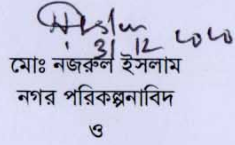 31/12/2020
মোঃ নজরুল ইসলাম
নগর পরিকল্পনাবিদ
ও